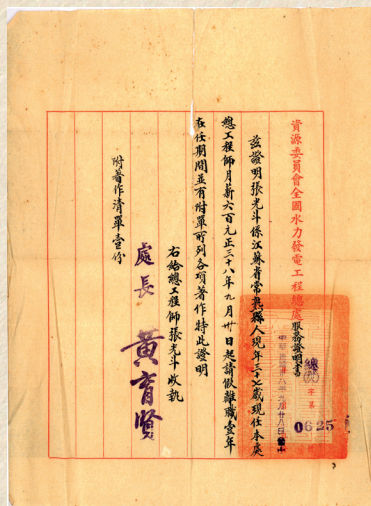 資源委員會全國水力發電工程總處服務證明書
總(卅八)字第
0625
中華民國卅八年九月廿八日
茲證明張光斗係江蘇省常熟縣人現年三十七歲現任本處
總工程師月薪六百元正三十八年九月廿日起請假離職壹年
在任期間並有附單所列各項著作特此證明
右給總工程師張光斗收執
處長 黃育賢
附著作清單壹份